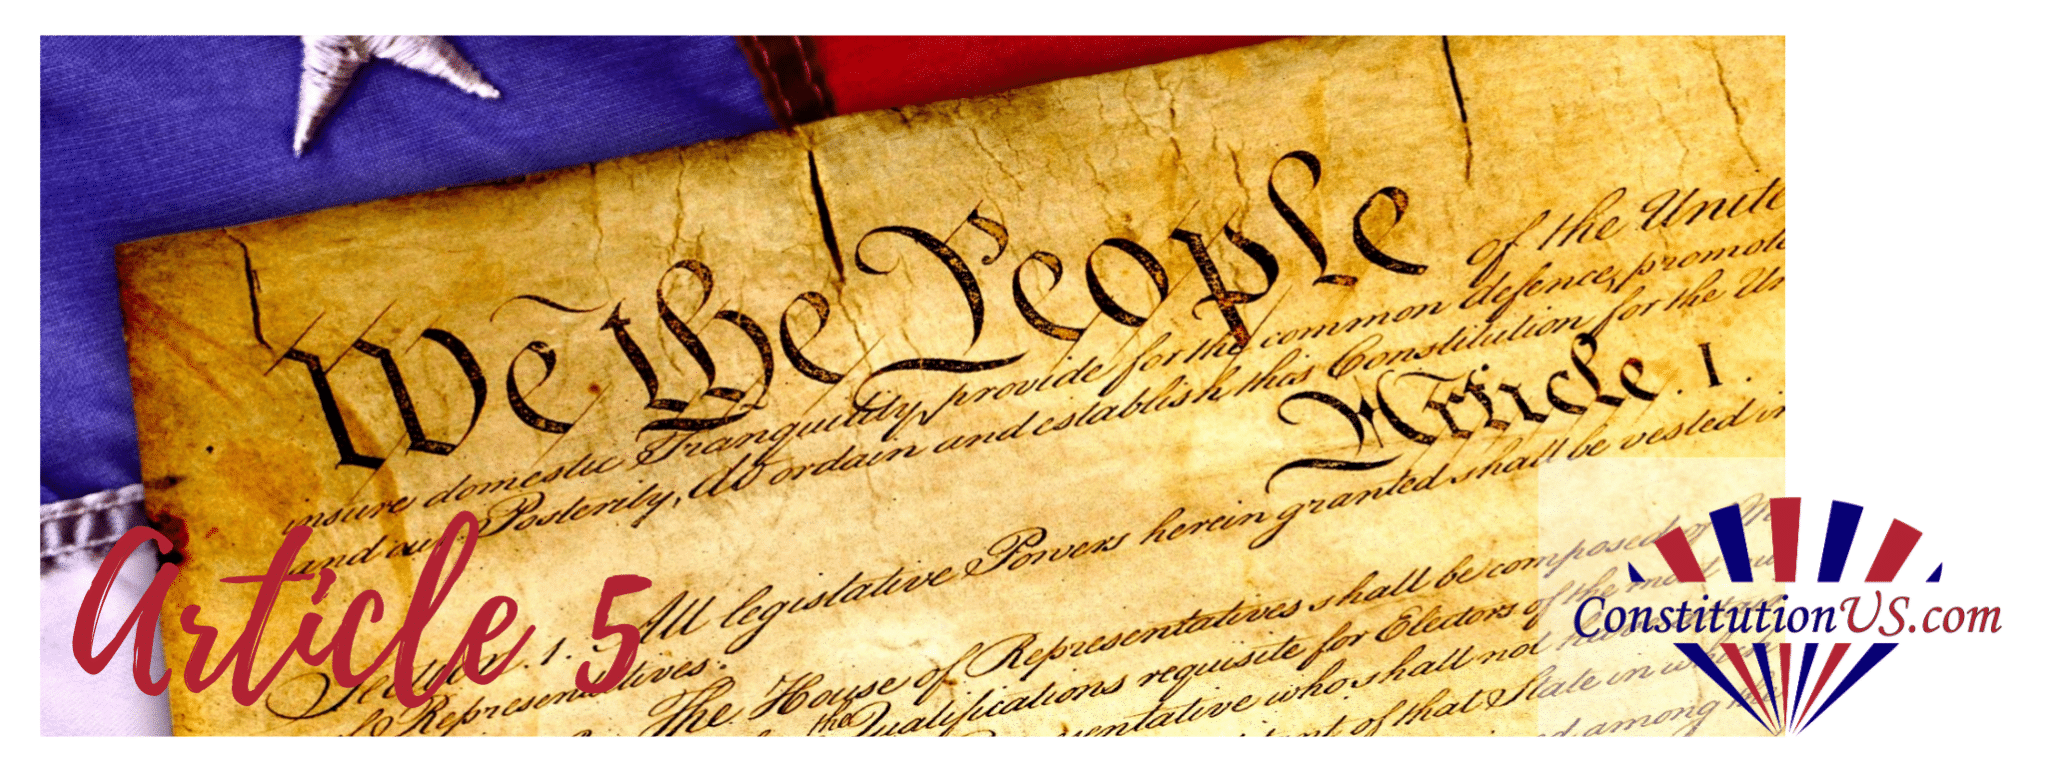 We the People
of the Unite
insure domestic Tranquility, provide for the common defence, promote
and our Posterity, do ordain and establish this Constitution for the Un
Article. I.
All legislative Powers herein granted shall be vested in
Section. 1.
of Representatives.
The House of Representatives shall be composed of
the
Qualifications requisite for Electors of the most
who shall not
of that State in
among the
Article 5
ConstitutionUS.com